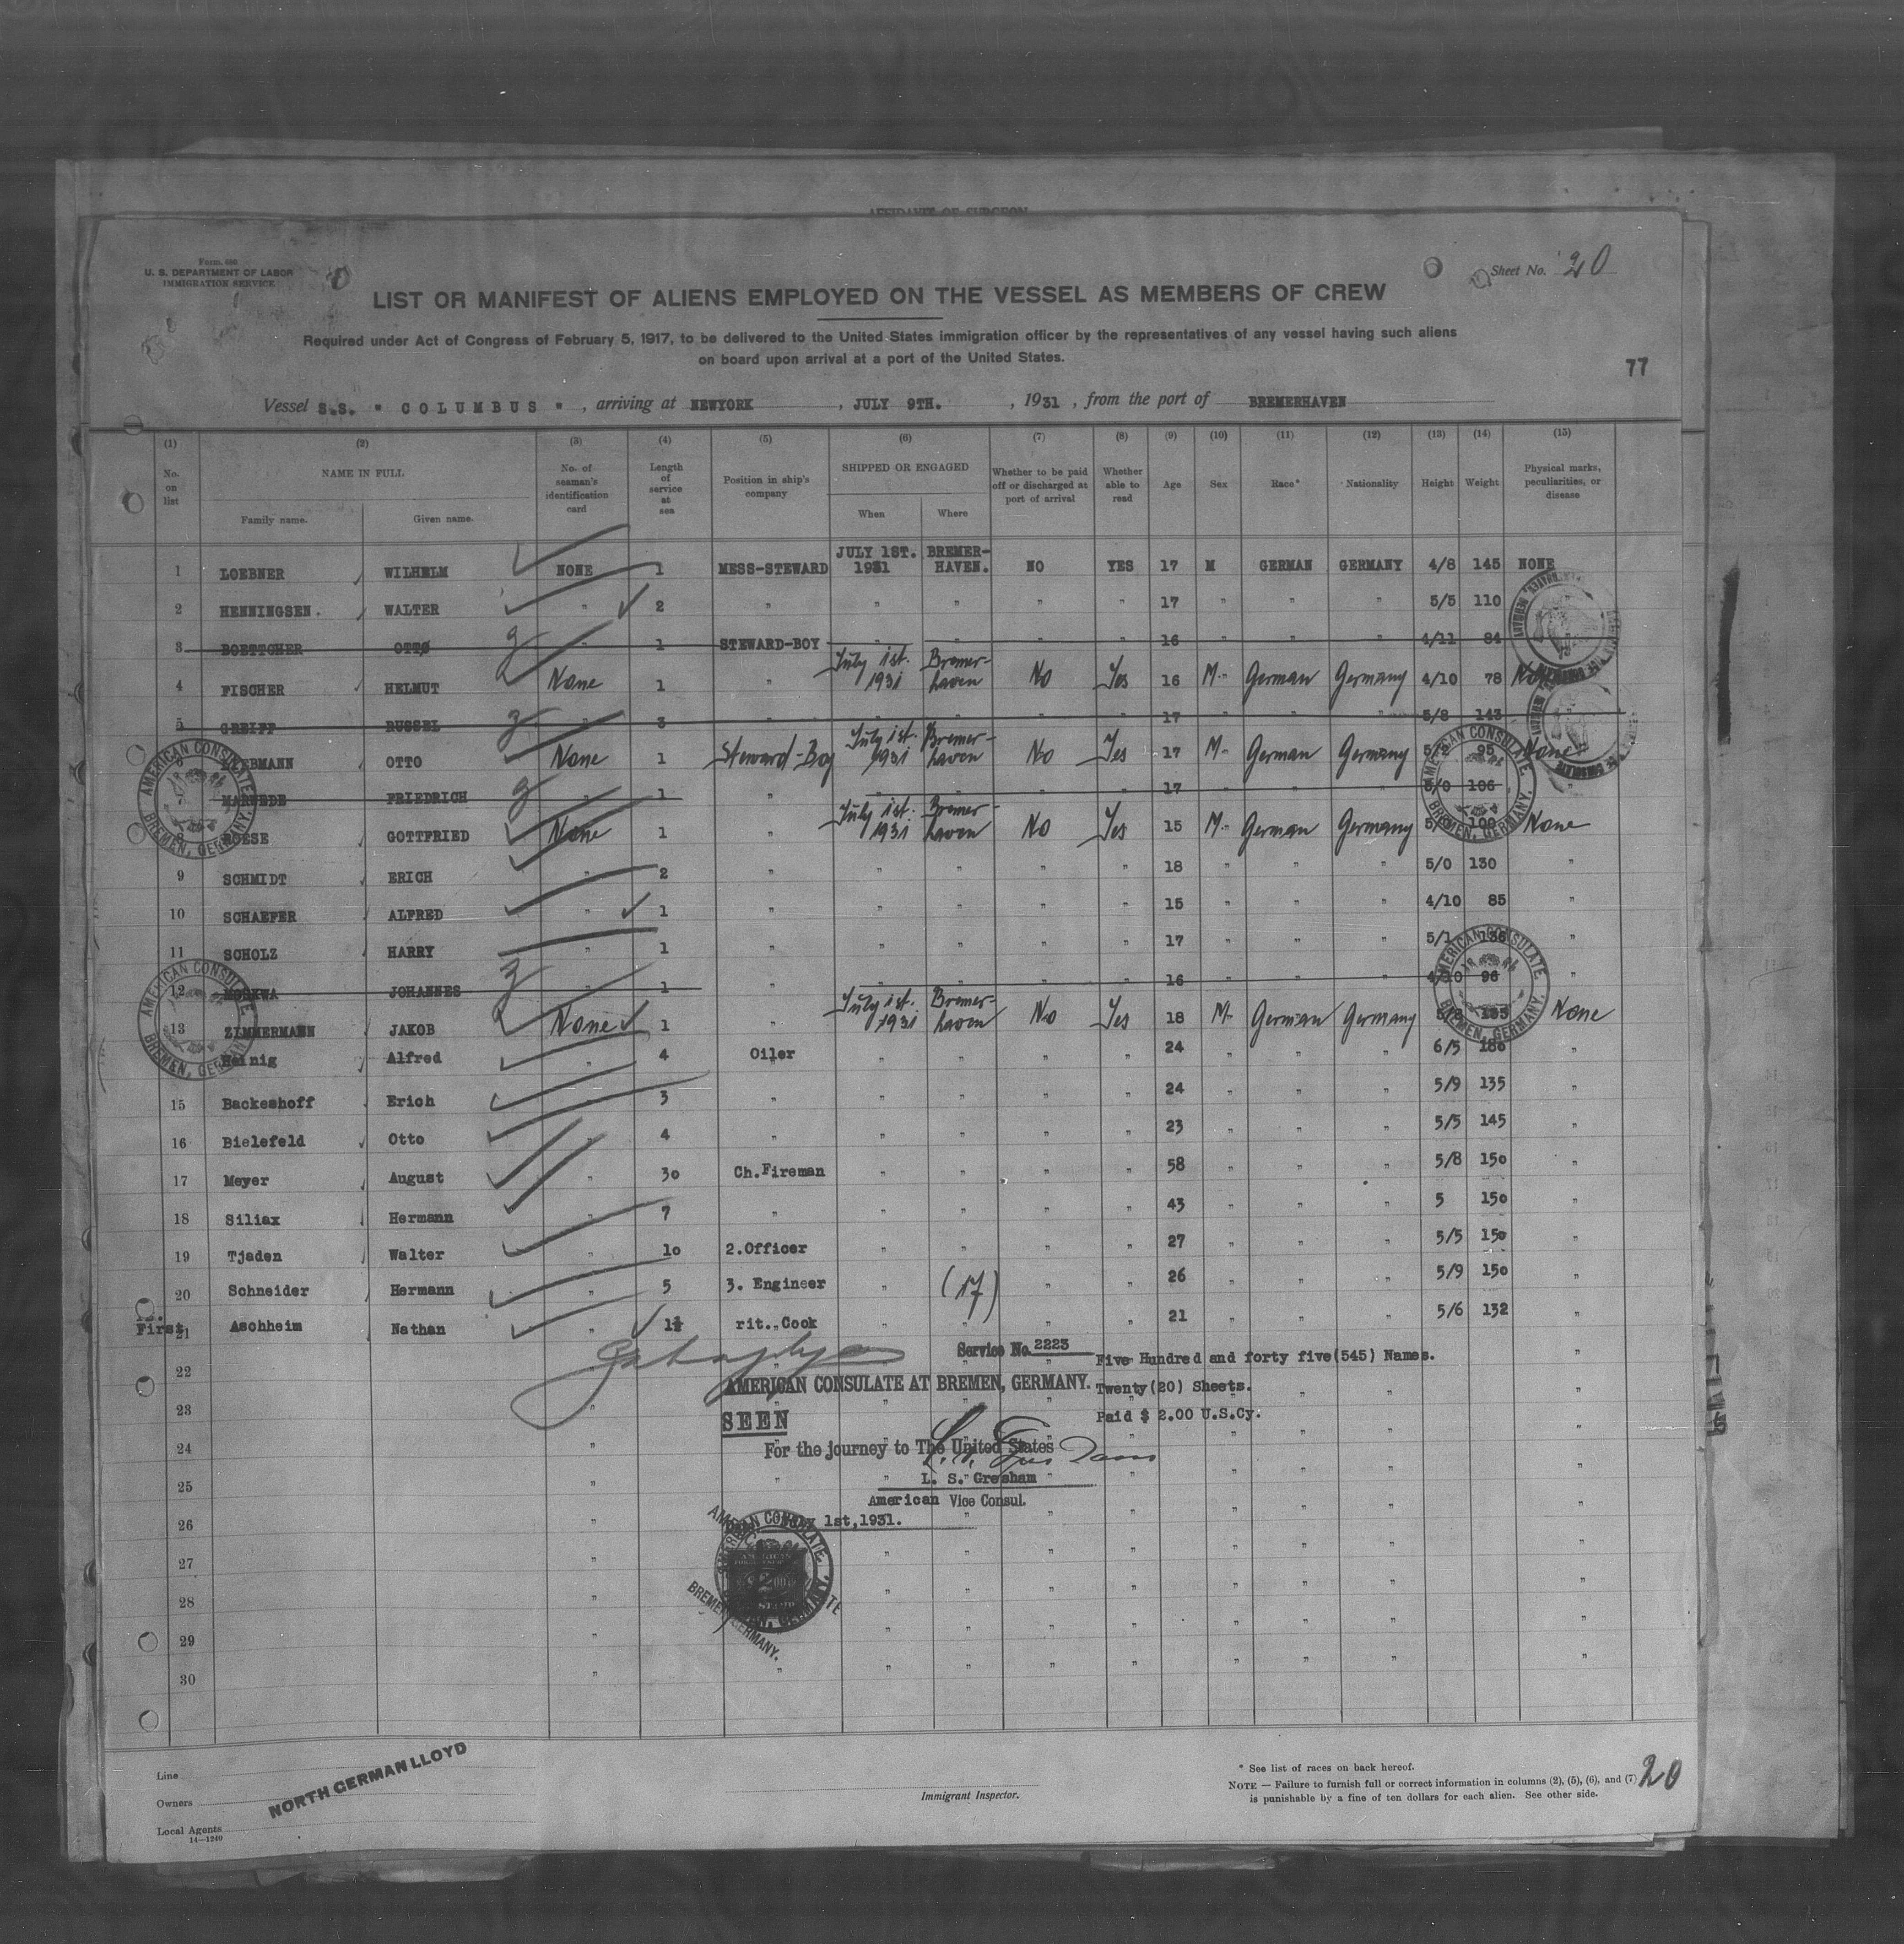 AFFIDAVIT OF SURGEON
Form 680
U. S. DEPARTMENT OF LABOR
IMMIGRATION SERVICE
Sheet No. 20
LIST OR MANIFEST OF ALIENS EMPLOYED ON THE VESSEL AS MEMBERS OF CREW
Required under Act of Congress of February 5, 1917, to be delivered to the United States immigration officer by the representatives of any vessel having such aliens
on board upon arrival at a port of the United States.
77
Vessel S.S. " COLUMBUS ", arriving at NEWYORK, JULY 9TH., 1931, from the port of BREMERHAVEN
(1) (2) (3) (4) (5) (6) (7) (8) (9) (10) (11) (12) (13) (14) (15)
No. on list NAME IN FULL Family name. Given name. No. of seaman's identification card Length of service at sea Position in ship's company SHIPPED OR ENGAGED When Where Whether to be paid off or discharged at port of arrival Whether able to read Age Sex Race* Nationality Height Weight Physical marks, peculiarities, or disease
1 LOEBNER WILHELM NONE 1 MESS-STEWARD JULY 1ST. 1931 BREMER-HAVEN. NO YES 17 M GERMAN GERMANY 4/8 145 NONE
2 HENNINGSEN. WALTER " 2 " " " " " 17 " " " 5/5 110
3 BOETTCHER OTTO " 1 STEWARD-BOY " " " " 16 " " " 4/11 84
4 FISCHER HELMUT None 1 " July 1st. 1931 Bremer-haven No Yes 16 M. German Germany 4/10 78
5 GREIFF RUSSEL " 3 " " " " " 17 " " " 5/8 143
OTTO None 1 Steward-Boy July 1st. 1931 Bremer-haven No Yes 17 M. German Germany 95 None
MARWEDE FRIEDRICH 1 " 17 106
8 GOTTFRIED None 1 " July 1st. 1931 Bremer-haven No Yes 15 M. German Germany 100 None
9 SCHMIDT ERICH " 2 " " " " " 18 " " " 5/0 130 "
10 SCHAEFER ALFRED " 1 " " " " " 15 " " " 4/10 85 "
11 SCHOLZ HARRY " 1 " " " " " 17 " " " 5/1 "
12 MOSKWA JOHANNES 1 " 16 4/10 96 "
13 ZIMMERMANN JAKOB None 1 " July 1st. 1931 Bremer-haven No Yes 18 M. German Germany None
Alfred " 4 Oiler " " " " 24 " " " 6/5 180 "
15 Backeshoff Erich 3 " " " " " 24 " " " 5/9 135 "
16 Bielefeld Otto " 4 " " " " " 23 " " " 5/5 145 "
17 Meyer August " 30 Ch.Fireman " " " " 58 " " " 5/8 150 "
18 Siliax Hermann 7 " " " " " 43 " " " 5 150 "
19 Tjaden Walter " 10 2.Officer " " " " 27 " " " 5/5 150 "
20 Schneider Hermann " 5 3. Engineer " (17) " " 26 " " " 5/9 150 "
First 21 Aschheim Nathan " 1½ rit. Cook " " " " 21 " " " 5/6 132 "
Service No. 2223
Five Hundred and forty five(545) Names.
22
AMERICAN CONSULATE AT BREMEN, GERMANY.
Twenty(20) Sheets.
23
SEEN
Paid $ 2.00 U.S.Cy.
24
For the journey to The United States
L. S. Gresham
25
American Vice Consul.
26
1st,1931.
27
28
29
30
AMERICAN CONSULATE
BREMEN, GERMANY.
AMERICAN CONSULATE
BREMEN, GERMANY.
AMERICAN CONSULATE
BREMEN, GERMANY.
AMERICAN CONSULATE
BREMEN, GERMANY.
AMERICAN CONSULATE
BREMEN, GERMANY.
Line
Owners
NORTH GERMAN LLOYD
Local Agents
14—1240
Immigrant Inspector.
* See list of races on back hereof.
NOTE — Failure to furnish full or correct information in columns (2), (5), (6), and (7)
is punishable by a fine of ten dollars for each alien. See other side.
20